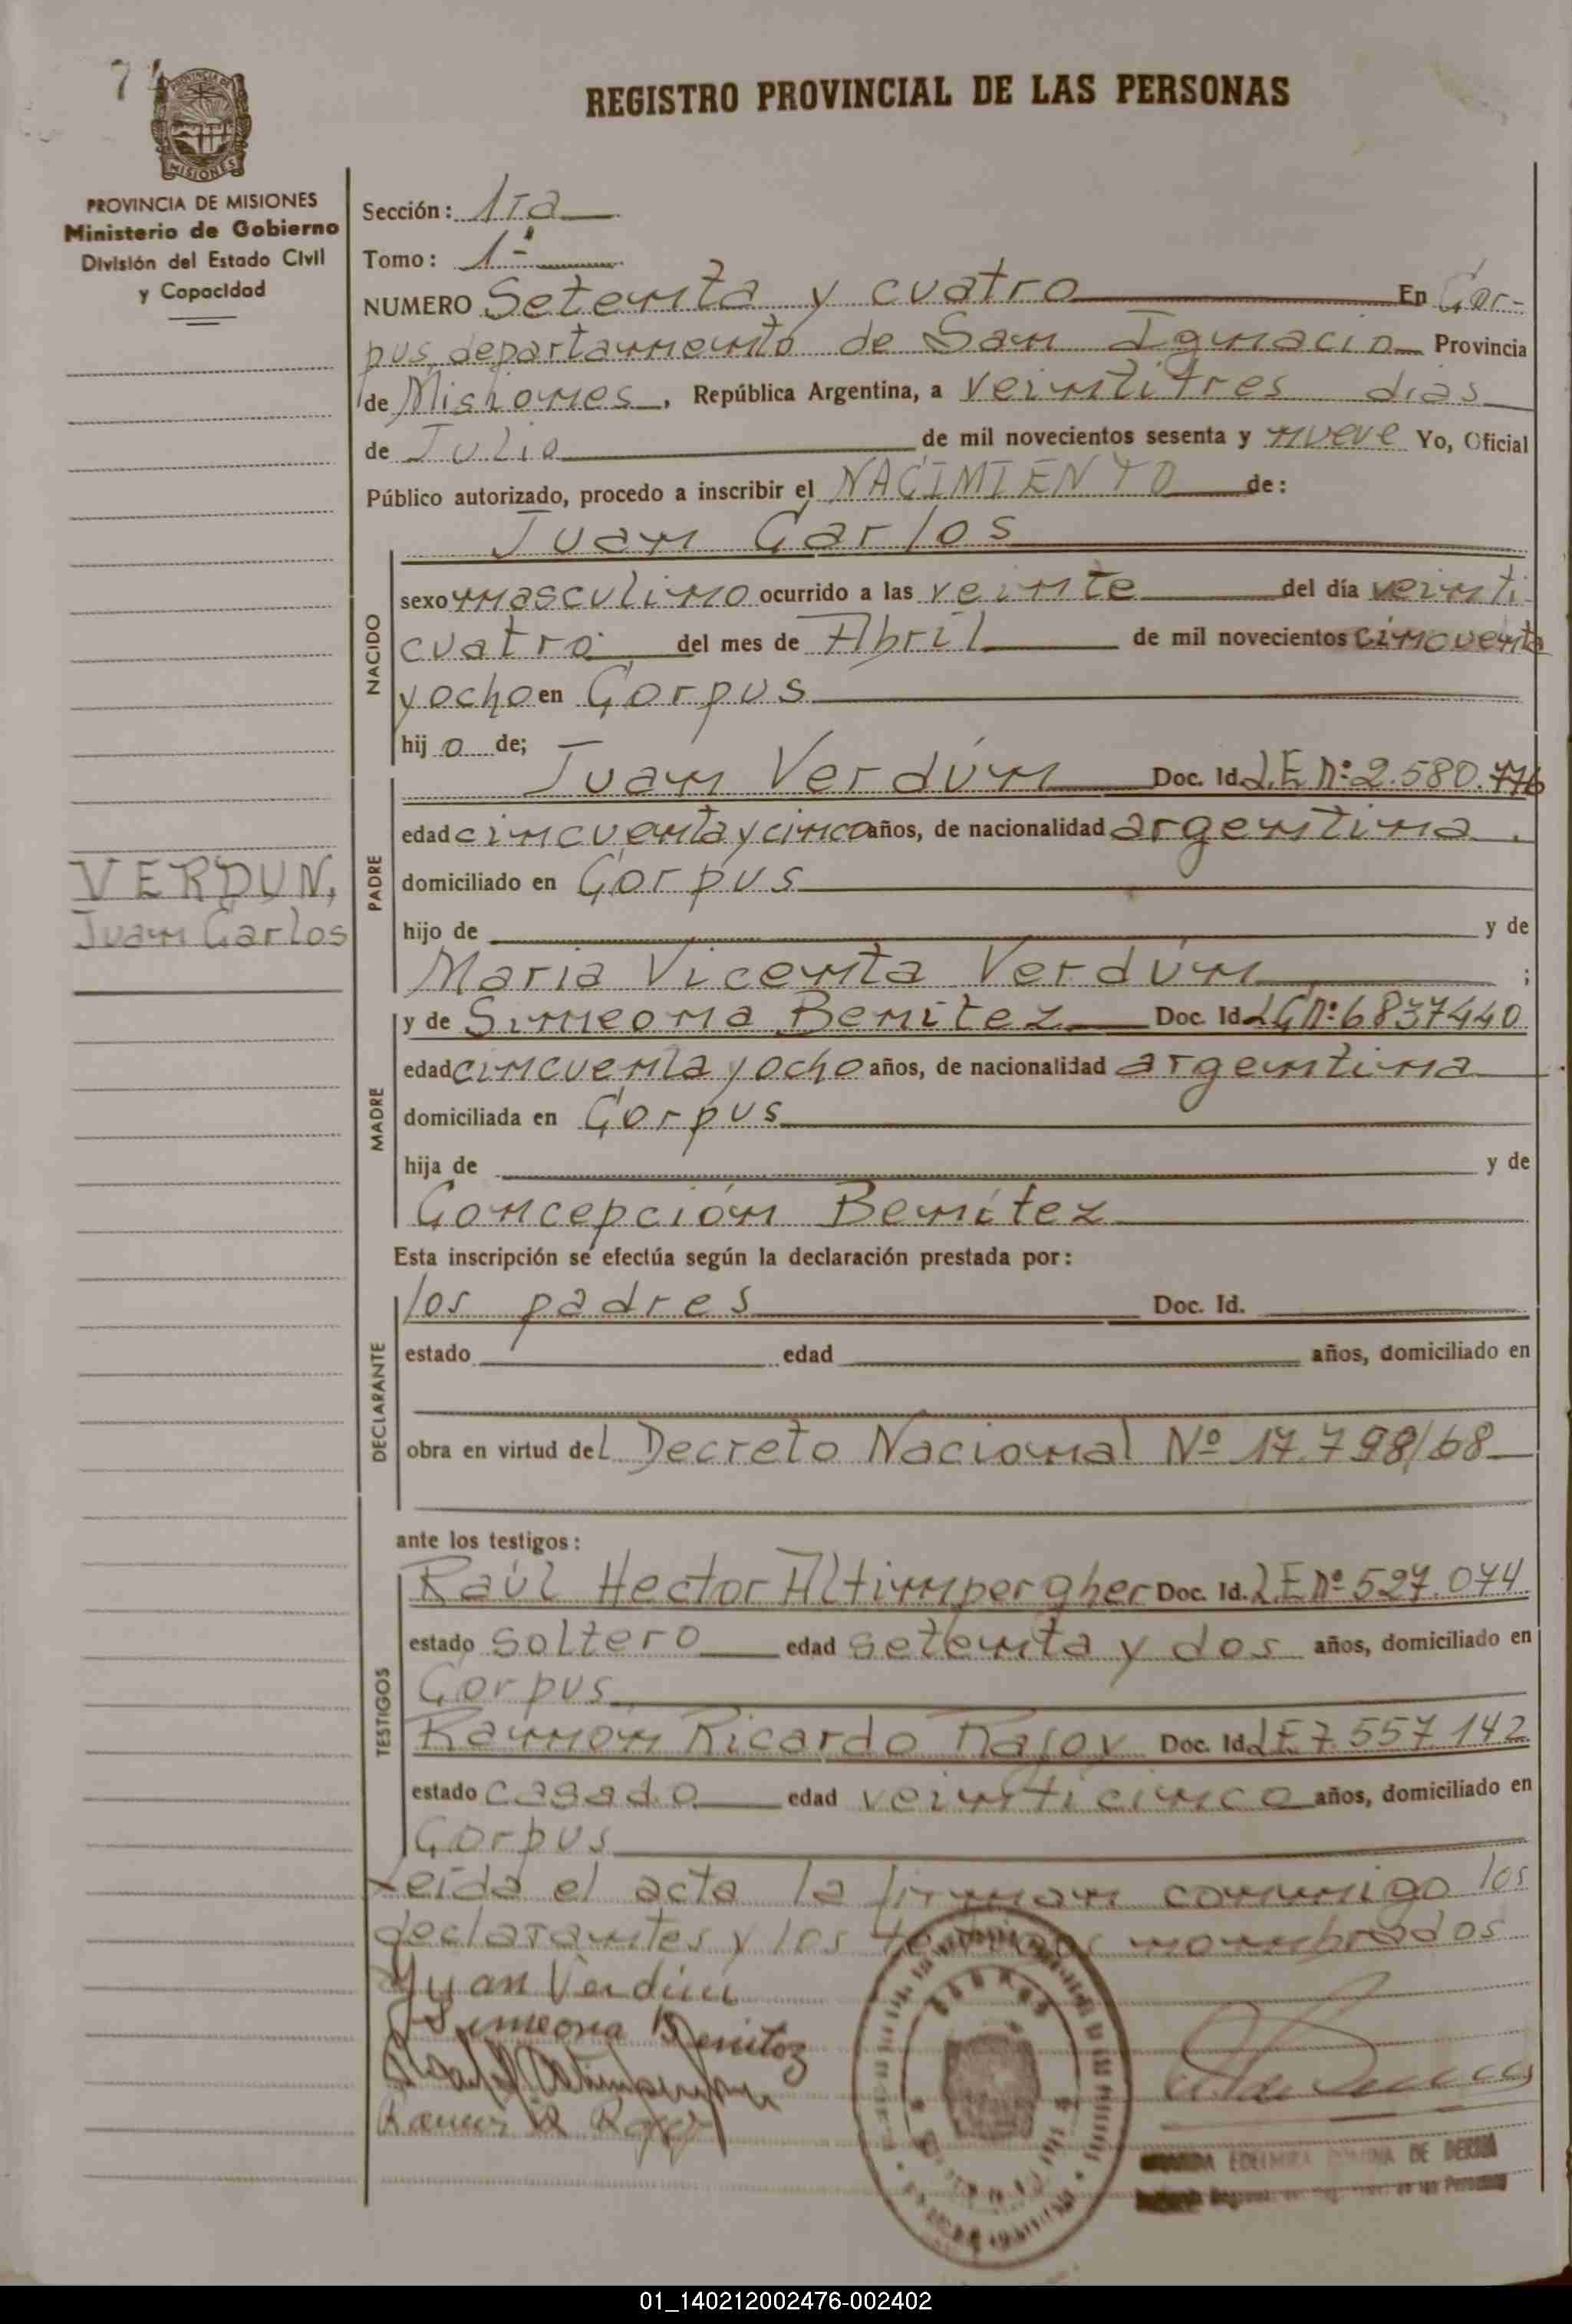 74
REGISTRO PROVINCIAL DE LAS PERSONAS
PROVINCIA DE MISIONES
Ministerio de Gobierno
División del Estado Civil
y Capacidad
Sección: 1ra
Tomo: 1º
NUMERO Setenta y cuatro En Cor-
pus, departamento de San Ignacio Provincia
de Misiones, República Argentina, a veintitres dias
de Julio de mil novecientos sesenta y nueve Yo, Oficial
Público autorizado, procedo a inscribir el NACIMIENTO de:
Juan Carlos
NACIDO
sexo masculino ocurrido a las veinte del día veinti-
cuatro del mes de Abril de mil novecientos cincuenta
y ocho en Corpus
hij o de;
PADRE
Juan Verdún Doc. Id. L.E.Nº 2.580.776
edad cincuenta y cinco años, de nacionalidad argentina.
domiciliado en Corpus
VERDUN,
Juan Carlos
hijo de y de
Maria Vicenta Verdún ;
MADRE
y de Simeona Benitez Doc. Id. L.C.Nº 6837440
edad cincuenta y ocho años, de nacionalidad argentina
domiciliada en Corpus
hija de y de
Concepción Benítez
Esta inscripción se efectúa según la declaración prestada por:
DECLARANTE
los padres Doc. Id.
estado edad años, domiciliado en
obra en virtud del Decreto Nacional Nº 17.798/68
ante los testigos:
TESTIGOS
Raúl Hector Altimpergher Doc. Id. L.E.Nº 527.074
estado soltero edad setenta y dos años, domiciliado en
Corpus
Ramón Ricardo Doc. Id. L.E. 7.557.142
estado casado edad veinticinco años, domiciliado en
Corpus
Leída el acta la firman conmigo los
declarantes y los testigos nombrados
Juan Verdún
Simeona Benitez
EDELMIRA DE
01_140212002476-002402